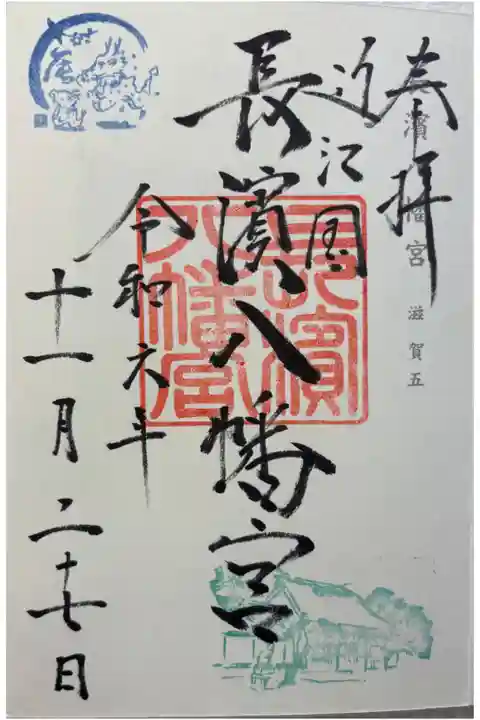 奉拝
濱 幡宮 滋賀五
近江国
長濱八幡宮
長濱八幡宮
令和六年
十一月二十七日